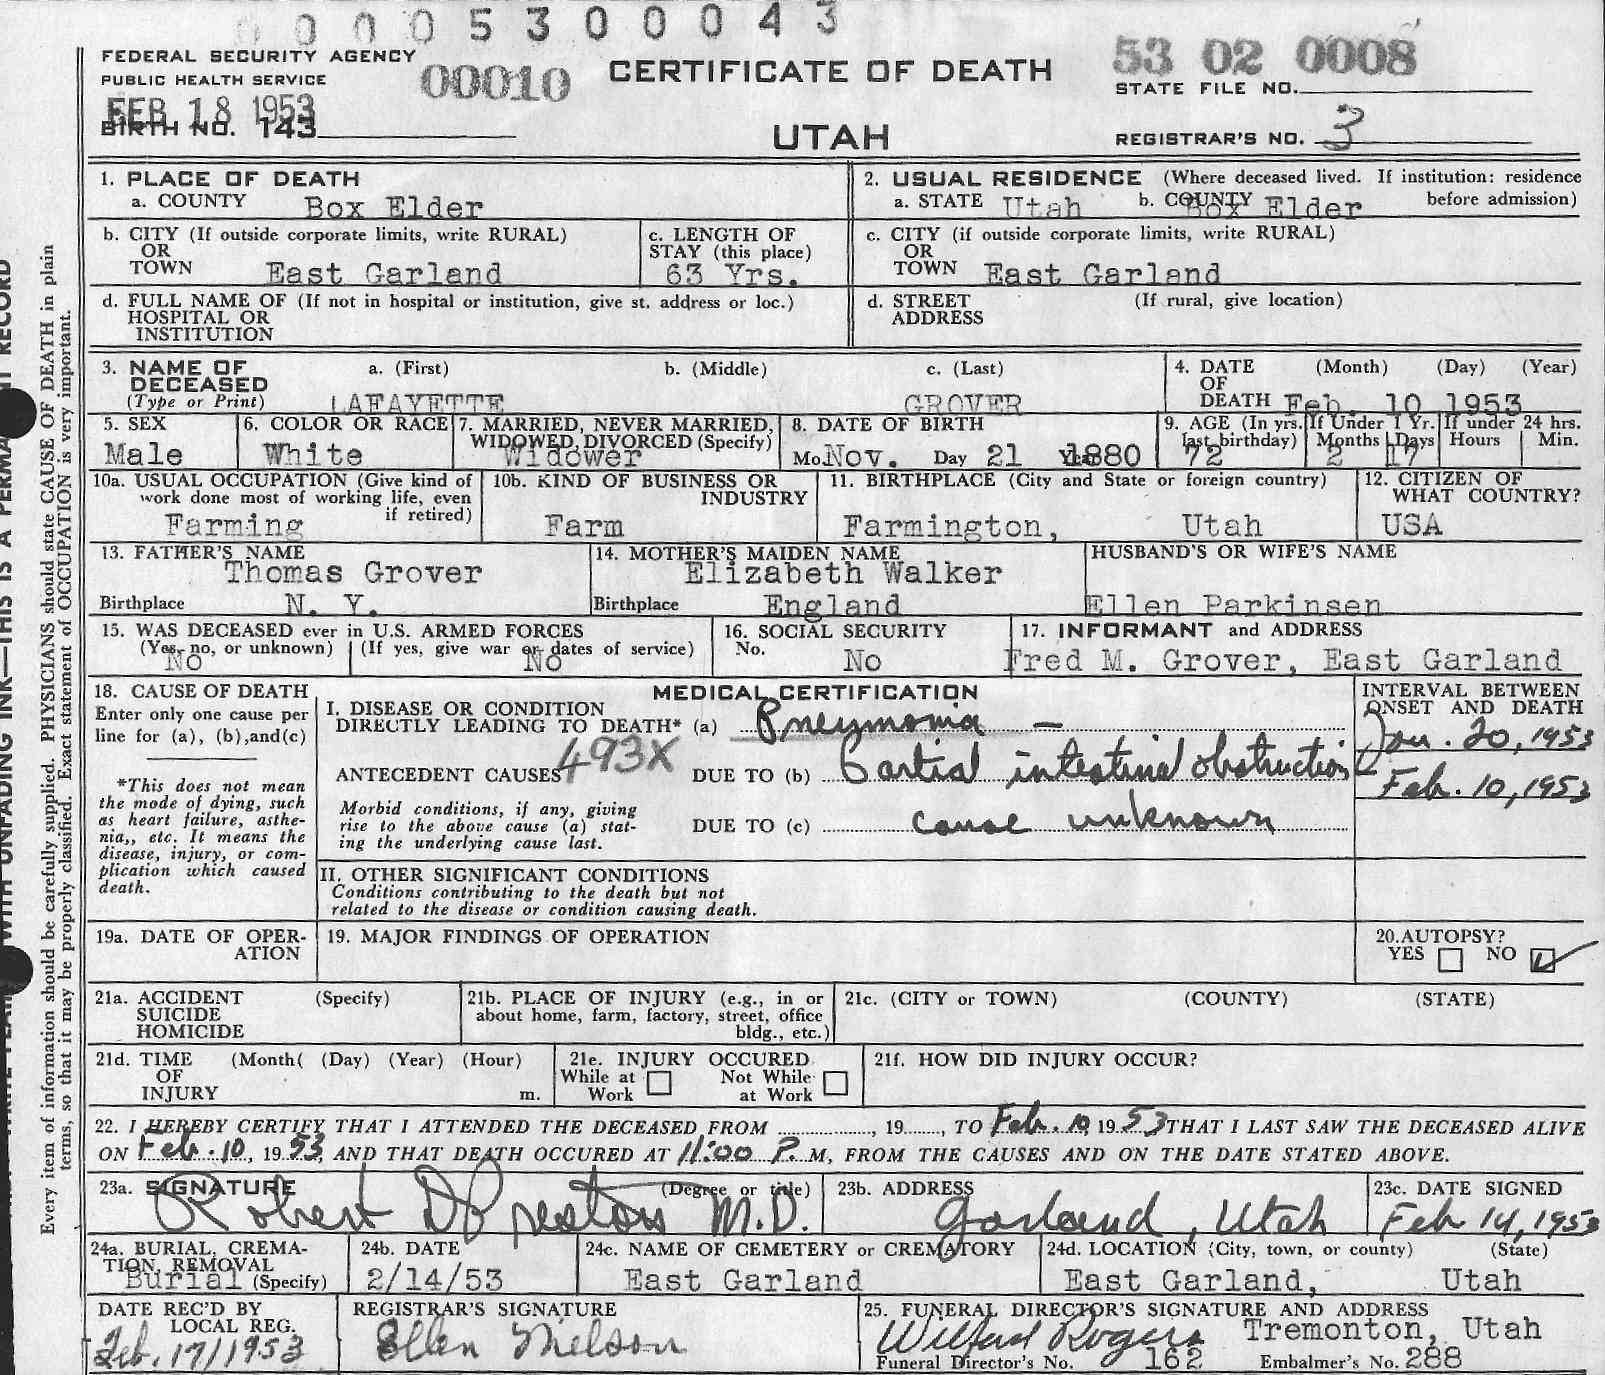 0 0 0 5 3 0 0 0 4 3
FEDERAL SECURITY AGENCY
PUBLIC HEALTH SERVICE
00010
CERTIFICATE OF DEATH
53 02 0008
STATE FILE NO.
FEB 18 1953
BIRTH NO. 143
UTAH
REGISTRAR'S NO. 3
1. PLACE OF DEATH
a. COUNTY Box Elder
2. USUAL RESIDENCE (Where deceased lived. If institution: residence before admission)
a. STATE Utah b. COUNTY Box Elder
b. CITY (If outside corporate limits, write RURAL)
OR
TOWN East Garland
c. LENGTH OF
STAY (this place)
63 Yrs.
c. CITY (if outside corporate limits, write RURAL)
OR
TOWN East Garland
d. FULL NAME OF (If not in hospital or institution, give st. address or loc.)
HOSPITAL OR
INSTITUTION
d. STREET (If rural, give location)
ADDRESS
3. NAME OF
DECEASED
(Type or Print)
a. (First) b. (Middle) c. (Last)
LAFAYETTE GROVER
4. DATE (Month) (Day) (Year)
OF
DEATH Feb. 10 1953
5. SEX
Male
6. COLOR OR RACE
White
7. MARRIED, NEVER MARRIED,
WIDOWED, DIVORCED (Specify)
Widower
8. DATE OF BIRTH
Mo. Nov. Day 21 Year 1880
9. AGE (In yrs. last birthday)
72
If Under 1 Yr.
Months Days
2 17
If under 24 hrs.
Hours Min.
10a. USUAL OCCUPATION (Give kind of
work done most of working life, even
if retired)
Farming
10b. KIND OF BUSINESS OR
INDUSTRY
Farm
11. BIRTHPLACE (City and State or foreign country)
Farmington, Utah
12. CITIZEN OF
WHAT COUNTRY?
USA
13. FATHER'S NAME
Thomas Grover
Birthplace N. Y.
14. MOTHER'S MAIDEN NAME
Elizabeth Walker
Birthplace England
HUSBAND'S OR WIFE'S NAME
Ellen Parkinsen
15. WAS DECEASED ever in U.S. ARMED FORCES
(Yes, no, or unknown) (If yes, give war or dates of service)
No No
16. SOCIAL SECURITY
No.
No
17. INFORMANT and ADDRESS
Fred M. Grover, East Garland
18. CAUSE OF DEATH
Enter only one cause per
line for (a), (b), and (c)
*This does not mean
the mode of dying, such
as heart failure, asthe-
nia,, etc. It means the
disease, injury, or com-
plication which caused
death.
MEDICAL CERTIFICATION
I. DISEASE OR CONDITION
DIRECTLY LEADING TO DEATH* (a) Pneumonia —
493X
ANTECEDENT CAUSES
DUE TO (b) Partial intestinal obstruction
Morbid conditions, if any, giving
rise to the above cause (a) stat-
ing the underlying cause last.
DUE TO (c) cause unknown
INTERVAL BETWEEN
ONSET AND DEATH
Jan. 20, 1953
Feb. 10, 1953
II. OTHER SIGNIFICANT CONDITIONS
Conditions contributing to the death but not
related to the disease or condition causing death.
19a. DATE OF OPER-
ATION
19. MAJOR FINDINGS OF OPERATION
20. AUTOPSY?
YES NO
21a. ACCIDENT (Specify)
SUICIDE
HOMICIDE
21b. PLACE OF INJURY (e.g., in or
about home, farm, factory, street, office
bldg., etc.)
21c. (CITY or TOWN) (COUNTY) (STATE)
21d. TIME (Month( (Day) (Year) (Hour)
OF
INJURY m.
21e. INJURY OCCURED
While at Work Not While at Work
21f. HOW DID INJURY OCCUR?
22. I HEREBY CERTIFY THAT I ATTENDED THE DECEASED FROM ............, 19......, TO Feb. 10, 1953 THAT I LAST SAW THE DECEASED ALIVE
ON Feb. 10, 1953, AND THAT DEATH OCCURED AT 11:00 P. M, FROM THE CAUSES AND ON THE DATE STATED ABOVE.
23a. SIGNATURE (Degree or title)
Robert D Preston M.D.
23b. ADDRESS
Garland, Utah
23c. DATE SIGNED
Feb 14, 1953
24a. BURIAL, CREMA-
TION, REMOVAL
Burial (Specify)
24b. DATE
2/14/53
24c. NAME OF CEMETERY or CREMATORY
East Garland
24d. LOCATION (City, town, or county) (State)
East Garland, Utah
DATE REC'D BY
LOCAL REG.
Feb. 17/1953
REGISTRAR'S SIGNATURE
Ellen Nielson
25. FUNERAL DIRECTOR'S SIGNATURE AND ADDRESS
Wilford Rogers Tremonton, Utah
Funeral Director's No. 162 Embalmer's No. 288
Every item of information should be carefully supplied. PHYSICIANS should state CAUSE OF DEATH in plain
terms, so that it may be properly classified. Exact statement of OCCUPATION is very important.
WITH UNFADING INK—THIS IS A RECORD